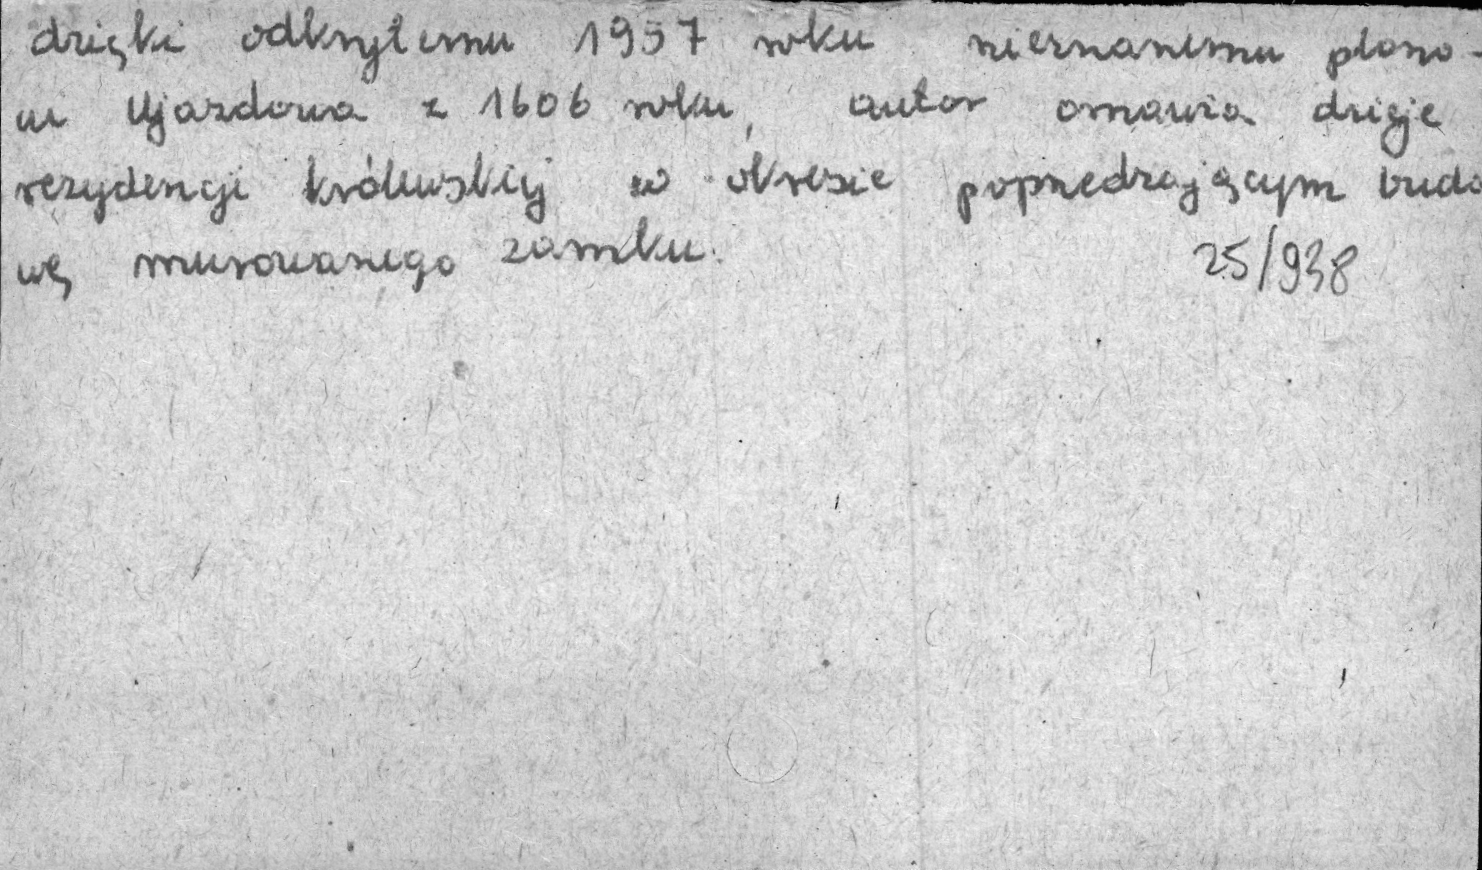 dzięki odkrytemu 1957 roku nieznanemu plano-
wi Ujazdowa z 1606 roku, autor omawia dzieje
rezydencji królewskiej w okresie poprzedzającym budo
wę murowanego zamku. 25/938